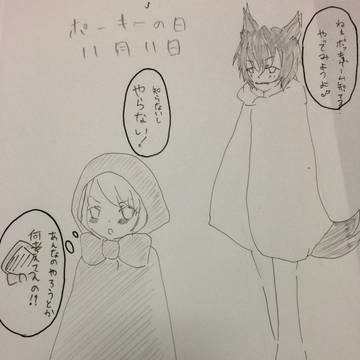 ポッキーの日
11月11日
ねぇポッキーゲーム知ってる?
やってみようよ♪
知らないし
やらない!
あんなのやろうとか
何考えてんの!?